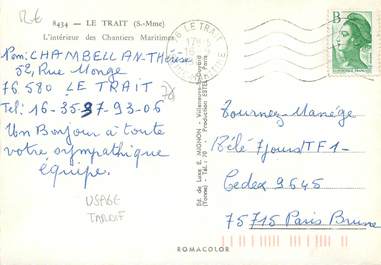 8434 - LE TRAIT (S.-Mme)
L'intérieur des Chantiers Maritimes
Rom: CHAMBELLAN-Thérèse
52, Rue Monge
76580 LE TRAIT
Tel: 16-35-37-93-06
Un Bonjour à toute
votre sympathique
équipe.
USAGE
TARDIF
Ed. de Luxe E. MIGNON - Villeneuve
(Yonne) - Tél. 70 - Production ESTEL - Paris
76 LE TRAIT
B
Tournez-Manège
Télé 7 Jours TF1-
Cedex 9545
75715 Paris Brune
ROMACOLOR